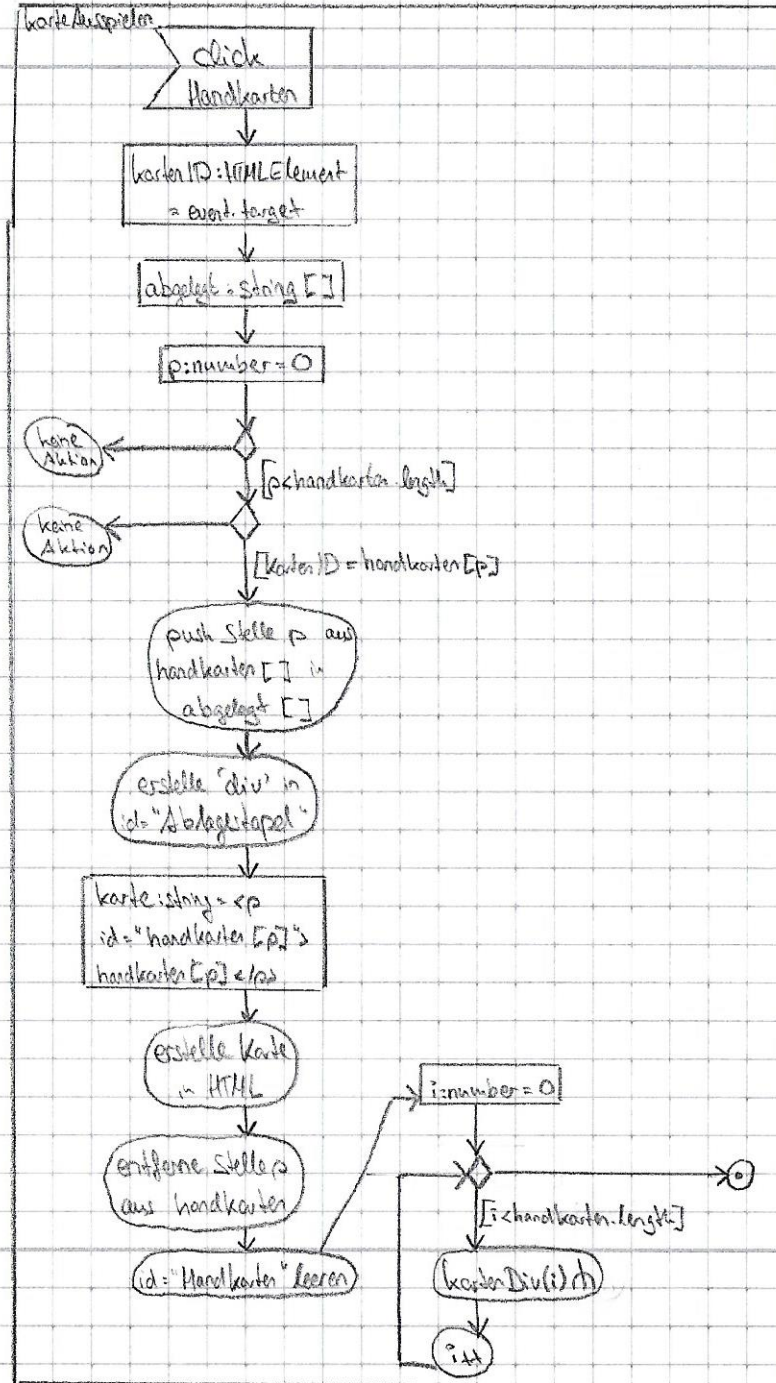 karteAusspielen
click
Handkarten
kartenID:HTMLElement
= event.target
abgelegt = string []
p:number = 0
keine
Aktion
[p<handkarten.length]
keine
Aktion
[kartenID = handkarten[p]
push Stelle p aus
handkarten [] in
abgelegt []
erstelle 'div' in
id="Ablagestapel"
karte:string = <p
id="handkarten[p]">
handkarten[p] </p>
erstelle Karte
in HTML
entferne Stelle p
aus handkarten
id="Handkarten" leeren
i:number = 0
[i<handkarten.length]
kartenDiv(i)
i++